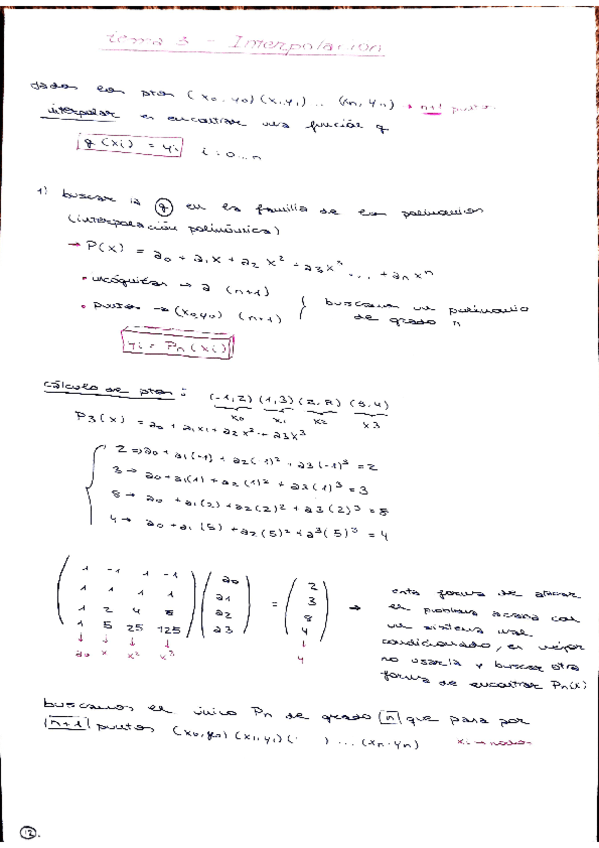 tema 3 - Interpolación
dados los ptos (x0, y0) (x1, y1) .. (xn, yn) → n+1 puntos
interpolar es encontrar una función g
g(xi) = yi   i = 0...n
1) buscar la g en la familia de los polinomios
(interpolación polinómica)
→ P(x) = a0 + a1x + a2x² + a3x³ ... + anxⁿ
• incógnitas → a (n+1)
• puntos → (x0,y0) (n+1) } buscamos un polinomio
de grado n
yi = Pn(xi)
cálculo de ptos: (-1,2) (1,3) (2,8) (5,4)
x0 x1 x2 x3
P3(x) = a0 + a1x1 + a2x² + a3x³
2 → a0 + a1(-1) + a2(-1)² + a3(-1)³ = 2
3 → a0 + a1(1) + a2(1)² + a3(1)³ = 3
8 → a0 + a1(2) + a2(2)² + a3(2)³ = 8
4 → a0 + a1(5) + a2(5)² + a³(5)³ = 4
1 -1 1 -1   a0   2
1 1 1 1   a1   3
1 2 4 8   a2 = 8 →
1 5 25 125   a3   4
↓ ↓ ↓ ↓   ↓
a0 x x² x³   y
esta forma de atacar
el problema acaba con
un sistema mal
condicionado, es mejor
no usarla y buscar otra
forma de encontrar Pn(x)
buscamos el único Pn de grado n que pasa por
n+1 puntos (x0,y0) (x1,y1) ( ) ... (xn,yn)   xi → nodos
12.